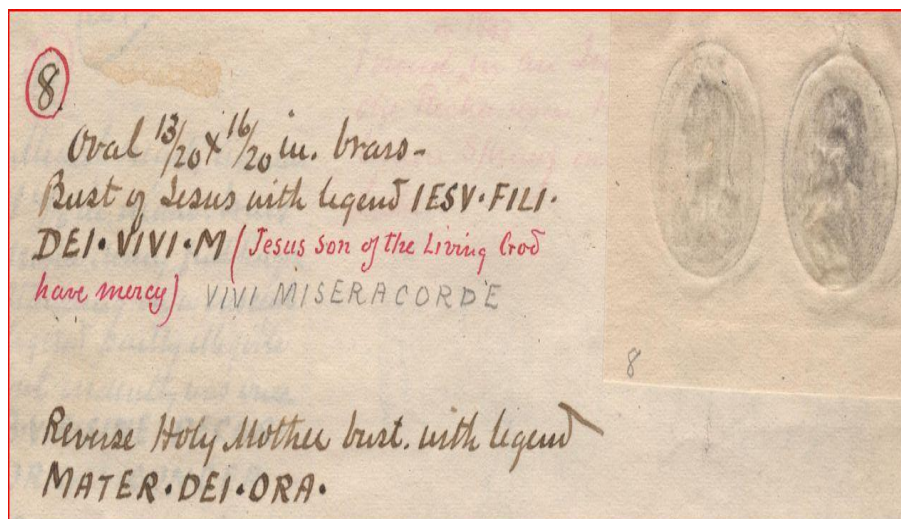 8.
Oval 13/20 x 16/20 in. brass-
Bust of Jesus with legend IESV·FILI·
DEI·VIVI·M (Jesus son of the Living God
have mercy) VIVI MISERACORDE
8
Reverse Holy Mother bust. with legend
MATER·DEI·ORA·